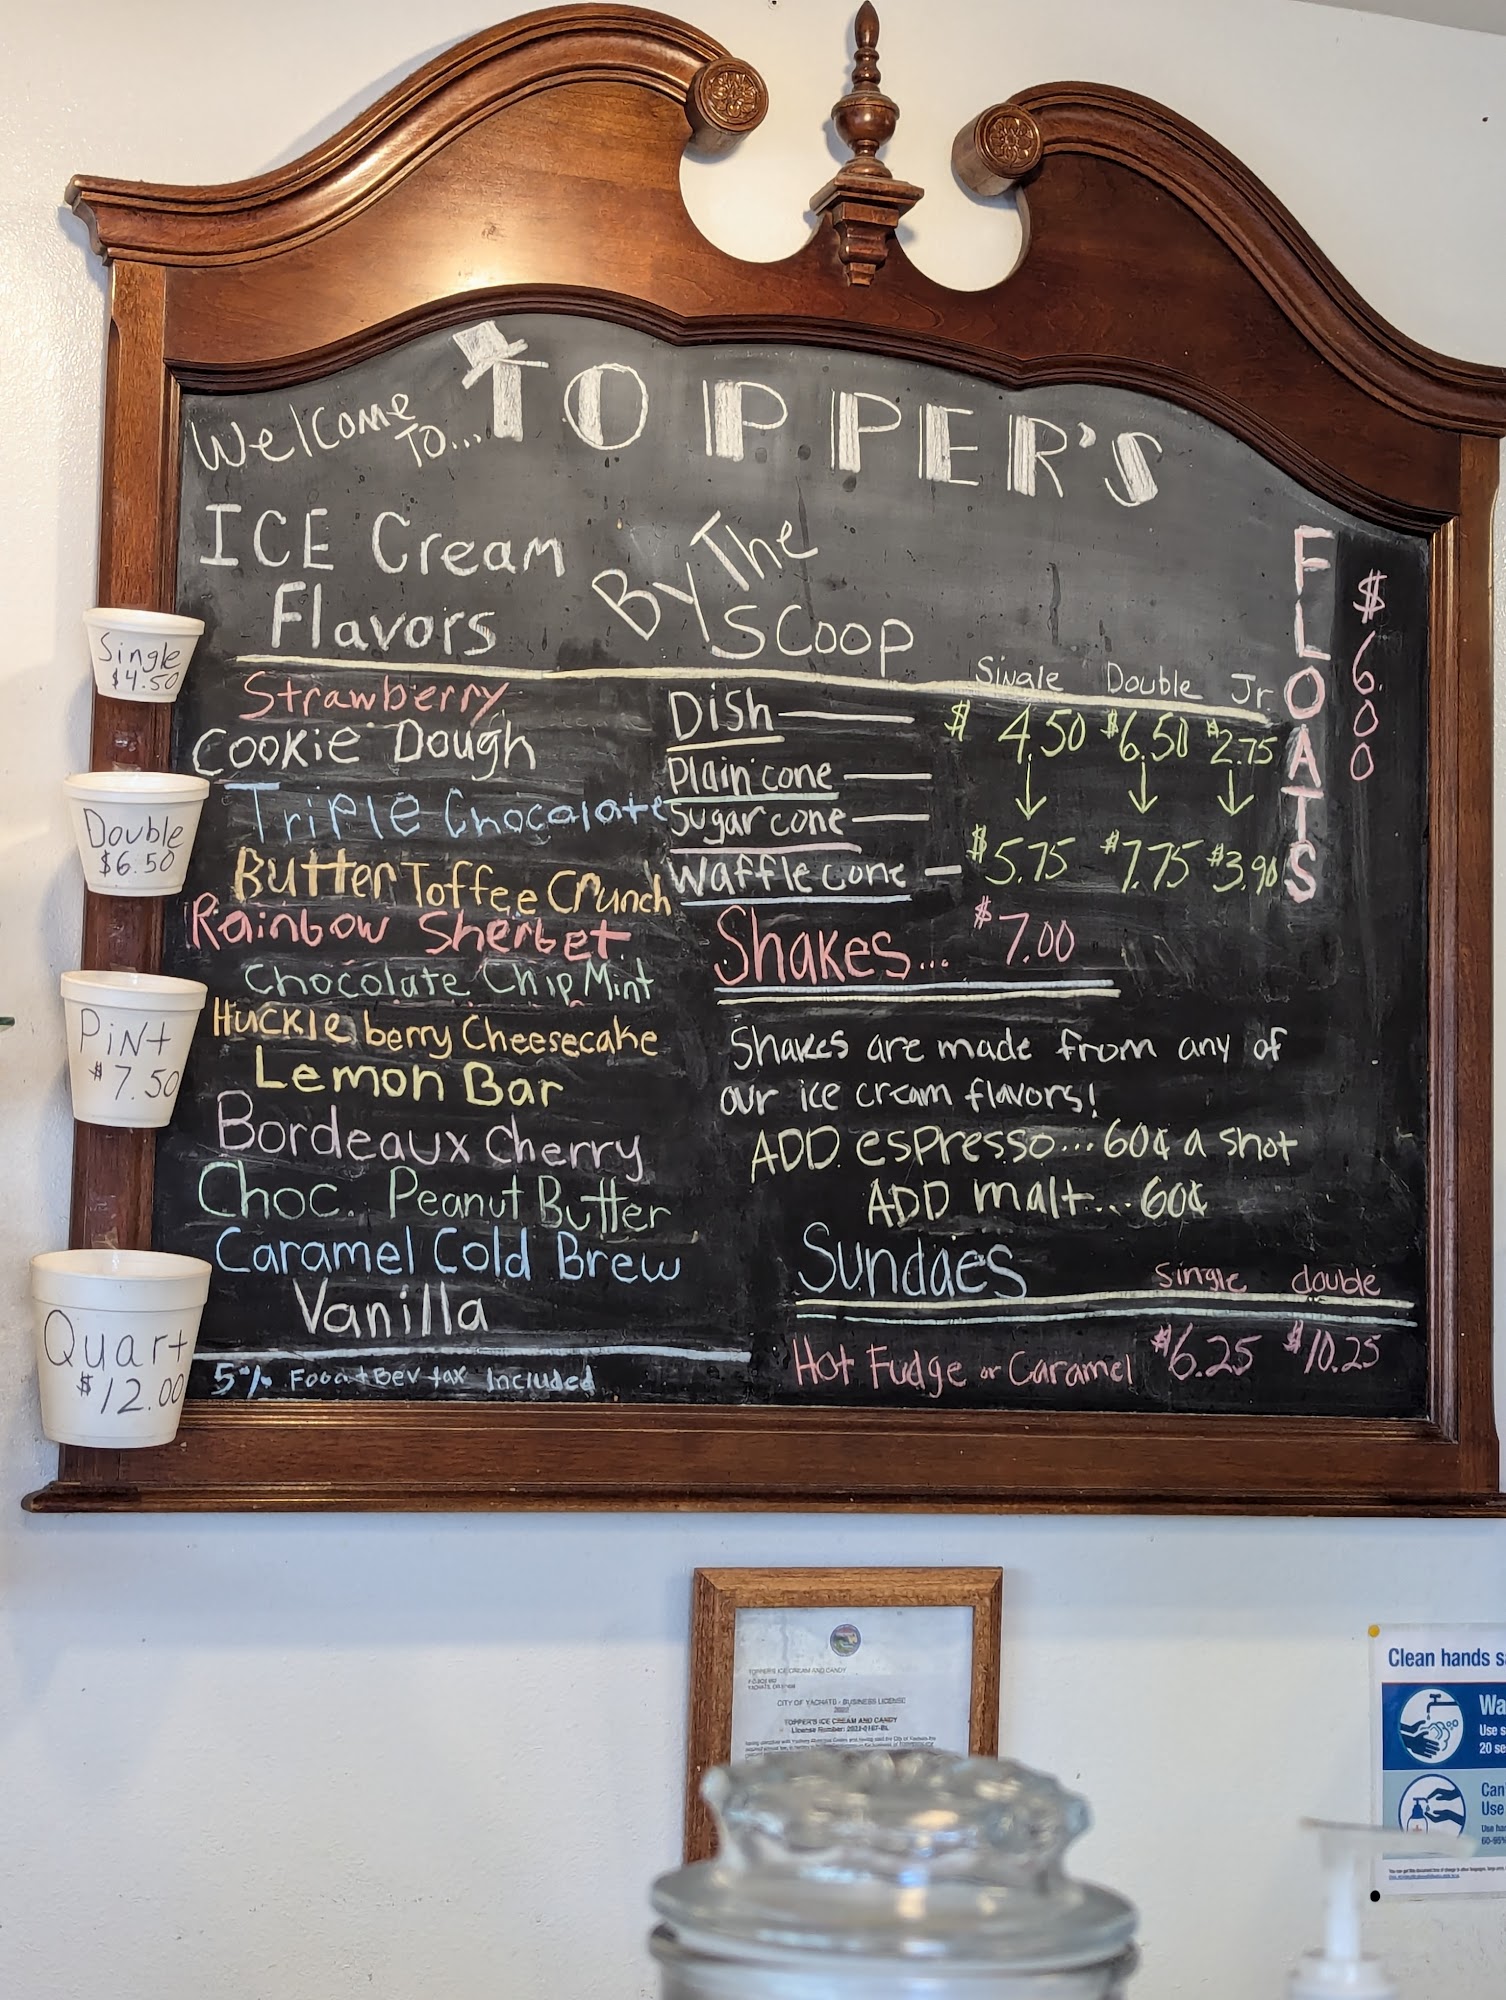 Welcome
To... TOPPER'S
ICE Cream
Flavors
Strawberry
Cookie Dough
Triple Chocolate
Butter Toffee Crunch
Rainbow Sherbet
Chocolate Chip Mint
Huckleberry Cheesecake
Lemon Bar
Bordeaux Cherry
Choc. Peanut Butter
Caramel Cold Brew
Vanilla
5% Food + Bev tax Included
By The
Scoop
Single Double Jr.
Dish $4.50 $6.50 $2.75
Plain cone
Sugar cone
Waffle cone $5.75 $7.75 $3.90
Shakes... $7.00
Shakes are made from any of
our ice cream flavors!
ADD espresso...60¢ a shot
ADD malt...60¢
Sundaes single double
Hot Fudge or Caramel $6.25 $10.25
FLOATS
$6.00
Single
$4.50
Double
$6.50
Pint
$7.50
Quart
$12.00
TOPPER'S ICE CREAM AND CANDY
CITY OF YACHATS - BUSINESS LICENSE
TOPPER'S ICE CREAM AND CANDY
Clean hands
Use
20
Use